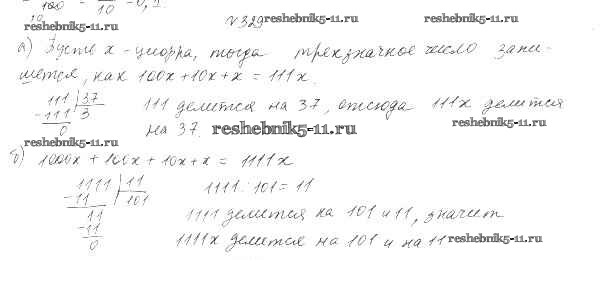 100 10 = 0,2.
10
reshebnik5-11.ru
№329 reshebnik5-11.ru reshebnik5-11.ru
а) Пусть x - цифра, тогда трехзначное число запи-
шется, как 100x + 10x + x = 111x.
111 | 37
-111 | 3
0
111 делится на 37, отсюда 111x делится
на 37. reshebnik5-11.ru reshebnik5-11.ru
reshebnik5-11.ru
б) 1000x + 100x + 10x + x = 1111x
1111 | 11
-11 | 101
11
-11
0
1111 : 101 = 11
1111 делится на 101 и 11, значит
1111x делится на 101 и на 11 reshebnik5-11.ru
reshebnik5-11.ru